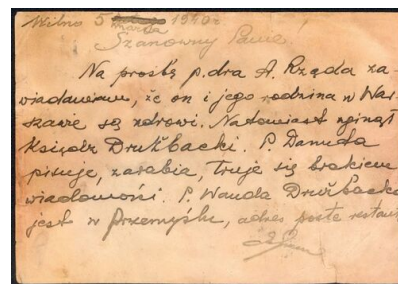 Wilno 5 marca 1940 r.
Szanowny Panie!
Na prośbę p. dra A. Rząda za-
wiadamiam, że on i jego rodzina w War-
szawie są zdrowi. Natomiast zginął
Ksiądz Drużbacki. P. Danuta
pisuje, zarabia, truje się brakiem
wiadomości. P. Wanda Drużbacka
jest w Przemyślu, adres poste restan